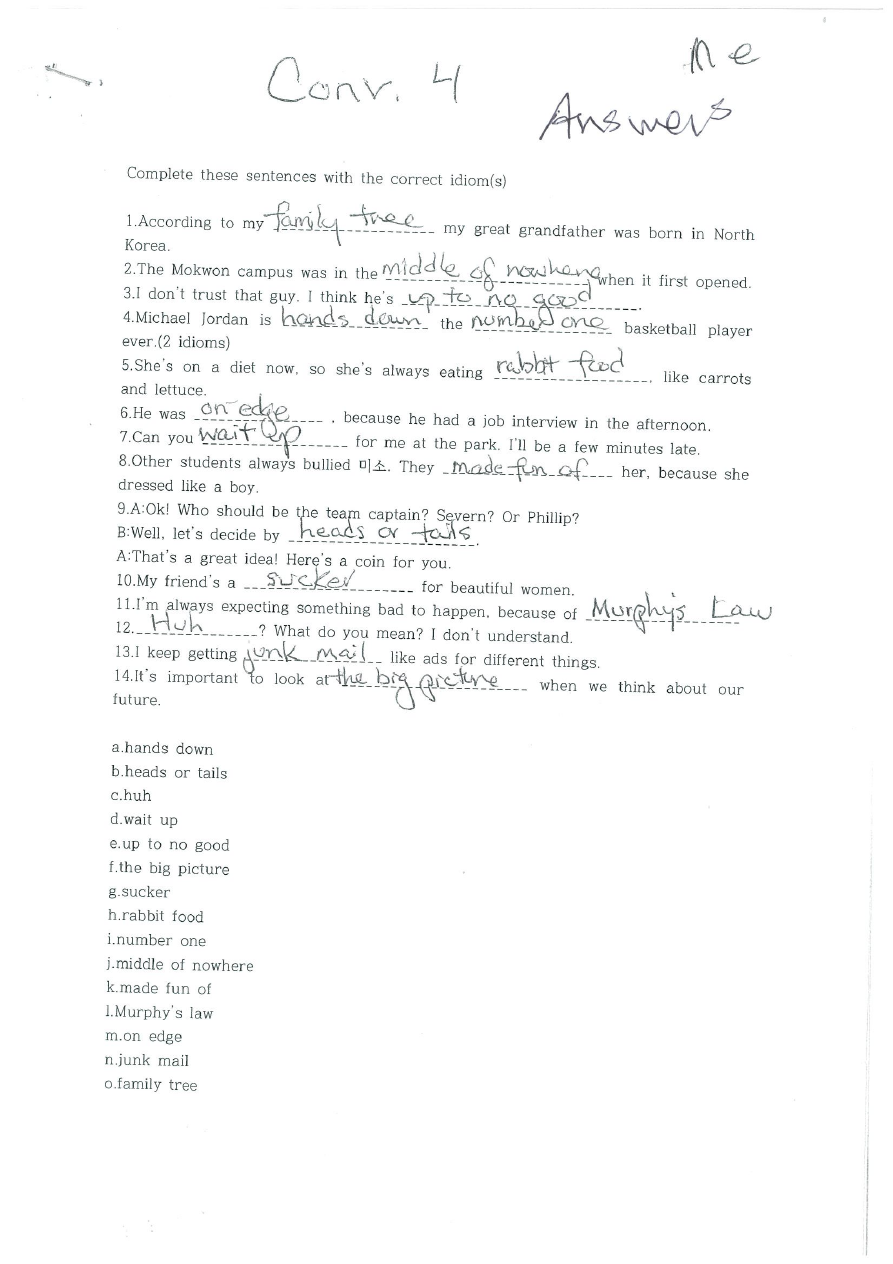 Conv. 4
me
Answers
Complete these sentences with the correct idiom(s)
1.According to my family tree my great grandfather was born in North
Korea.
2.The Mokwon campus was in the middle of nowhere when it first opened.
3.I don't trust that guy. I think he's up to no good.
4.Michael Jordan is hands down the number one basketball player
ever.(2 idioms)
5.She's on a diet now, so she's always eating rabbit food, like carrots
and lettuce.
6.He was on edge, because he had a job interview in the afternoon.
7.Can you wait up for me at the park. I'll be a few minutes late.
8.Other students always bullied 미소. They made fun of her, because she
dressed like a boy.
9.A:Ok! Who should be the team captain? Severn? Or Phillip?
B:Well, let's decide by heads or tails.
A:That's a great idea! Here's a coin for you.
10.My friend's a sucker for beautiful women.
11.I'm always expecting something bad to happen, because of Murphy's Law
12. Huh? What do you mean? I don't understand.
13.I keep getting junk mail like ads for different things.
14.It's important to look at the big picture when we think about our
future.
a.hands down
b.heads or tails
c.huh
d.wait up
e.up to no good
f.the big picture
g.sucker
h.rabbit food
i.number one
j.middle of nowhere
k.made fun of
l.Murphy's law
m.on edge
n.junk mail
o.family tree